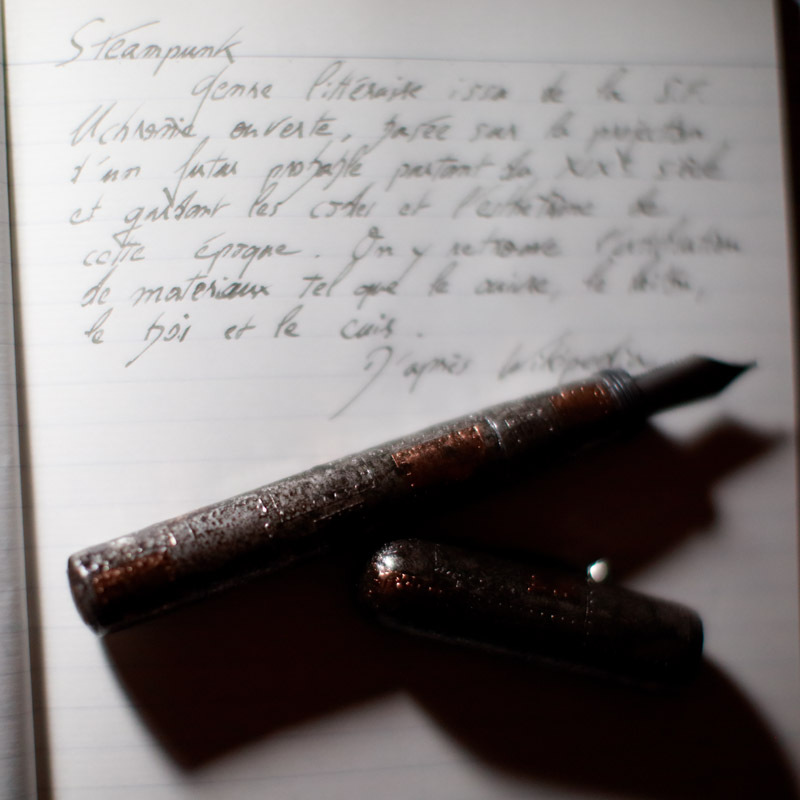 Steampunk
Genre littéraire issu de la S.F.
Uchronie, ouverte, basée sur la projection
d'un futur probable partant du XIXe siècle
et gardant les codes et l'esthétisme de
cette époque. On y retrouve l'utilisation
de materiaux tel que le cuivre, le laiton,
le bois et le cuir.
D'après Wikipedia